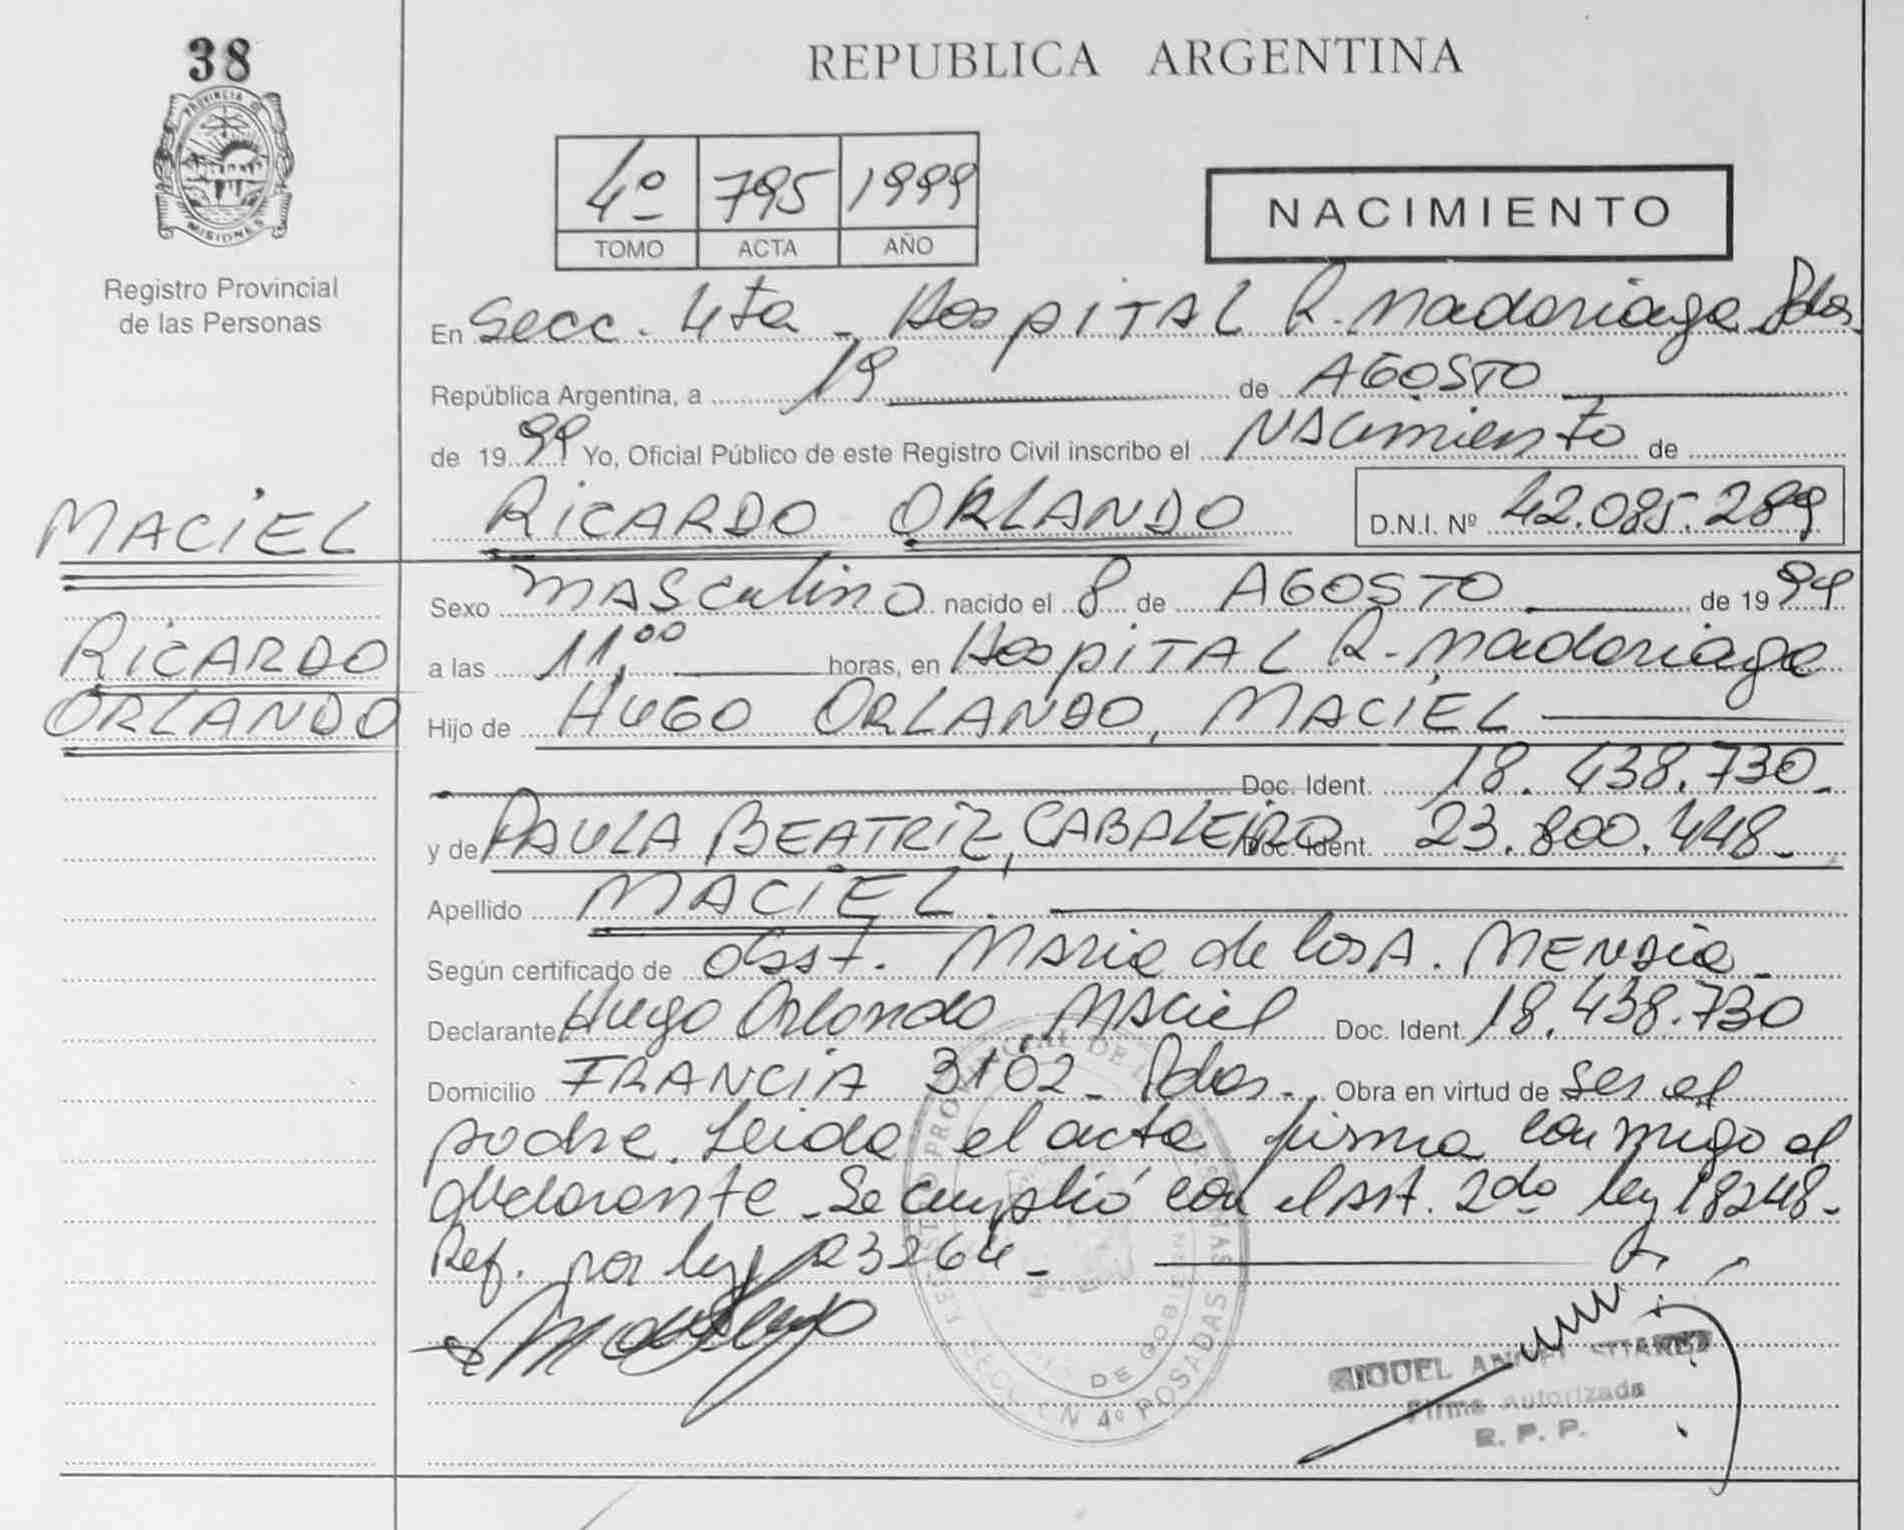 38
PROVINCIA DE
MISIONES
Registro Provincial
de las Personas
REPUBLICA ARGENTINA
4º 795 1999
TOMO ACTA AÑO
NACIMIENTO
En Secc. 4ta - Hospital R. Madariaga Pdas.
República Argentina, a 19 de AGOSTO
de 1999 Yo, Oficial Público de este Registro Civil inscribo el Nacimiento de
MACIEL
RICARDO ORLANDO D.N.I. Nº 42.085.289
Sexo Masculino nacido el 8 de AGOSTO de 1999
RICARDO
a las 11,00 horas, en Hospital R. Madariaga
ORLANDO
Hijo de HUGO ORLANDO, MACIEL
Doc. Ident. 18.438.730.
y de PAULA BEATRIZ, CABALEIRO Doc. Ident. 23.800.448.
Apellido MACIEL.
Según certificado de Obst. Maria de los A. MENDIA
Declarante Hugo Orlando Maciel Doc. Ident. 18.438.730
Domicilio FRANCIA 3102 - Pdas. Obra en virtud de ser el
padre. Leida el acta firma conmigo el
declarante - Se cumplió con el Art. 2do ley 18248.
Ref. por ley 23264 -
DE GOBIERN
SECCIÓN 4º POSADAS
MIGUEL ANGEL SUAREZ
Firma Autorizada
R. P. P.